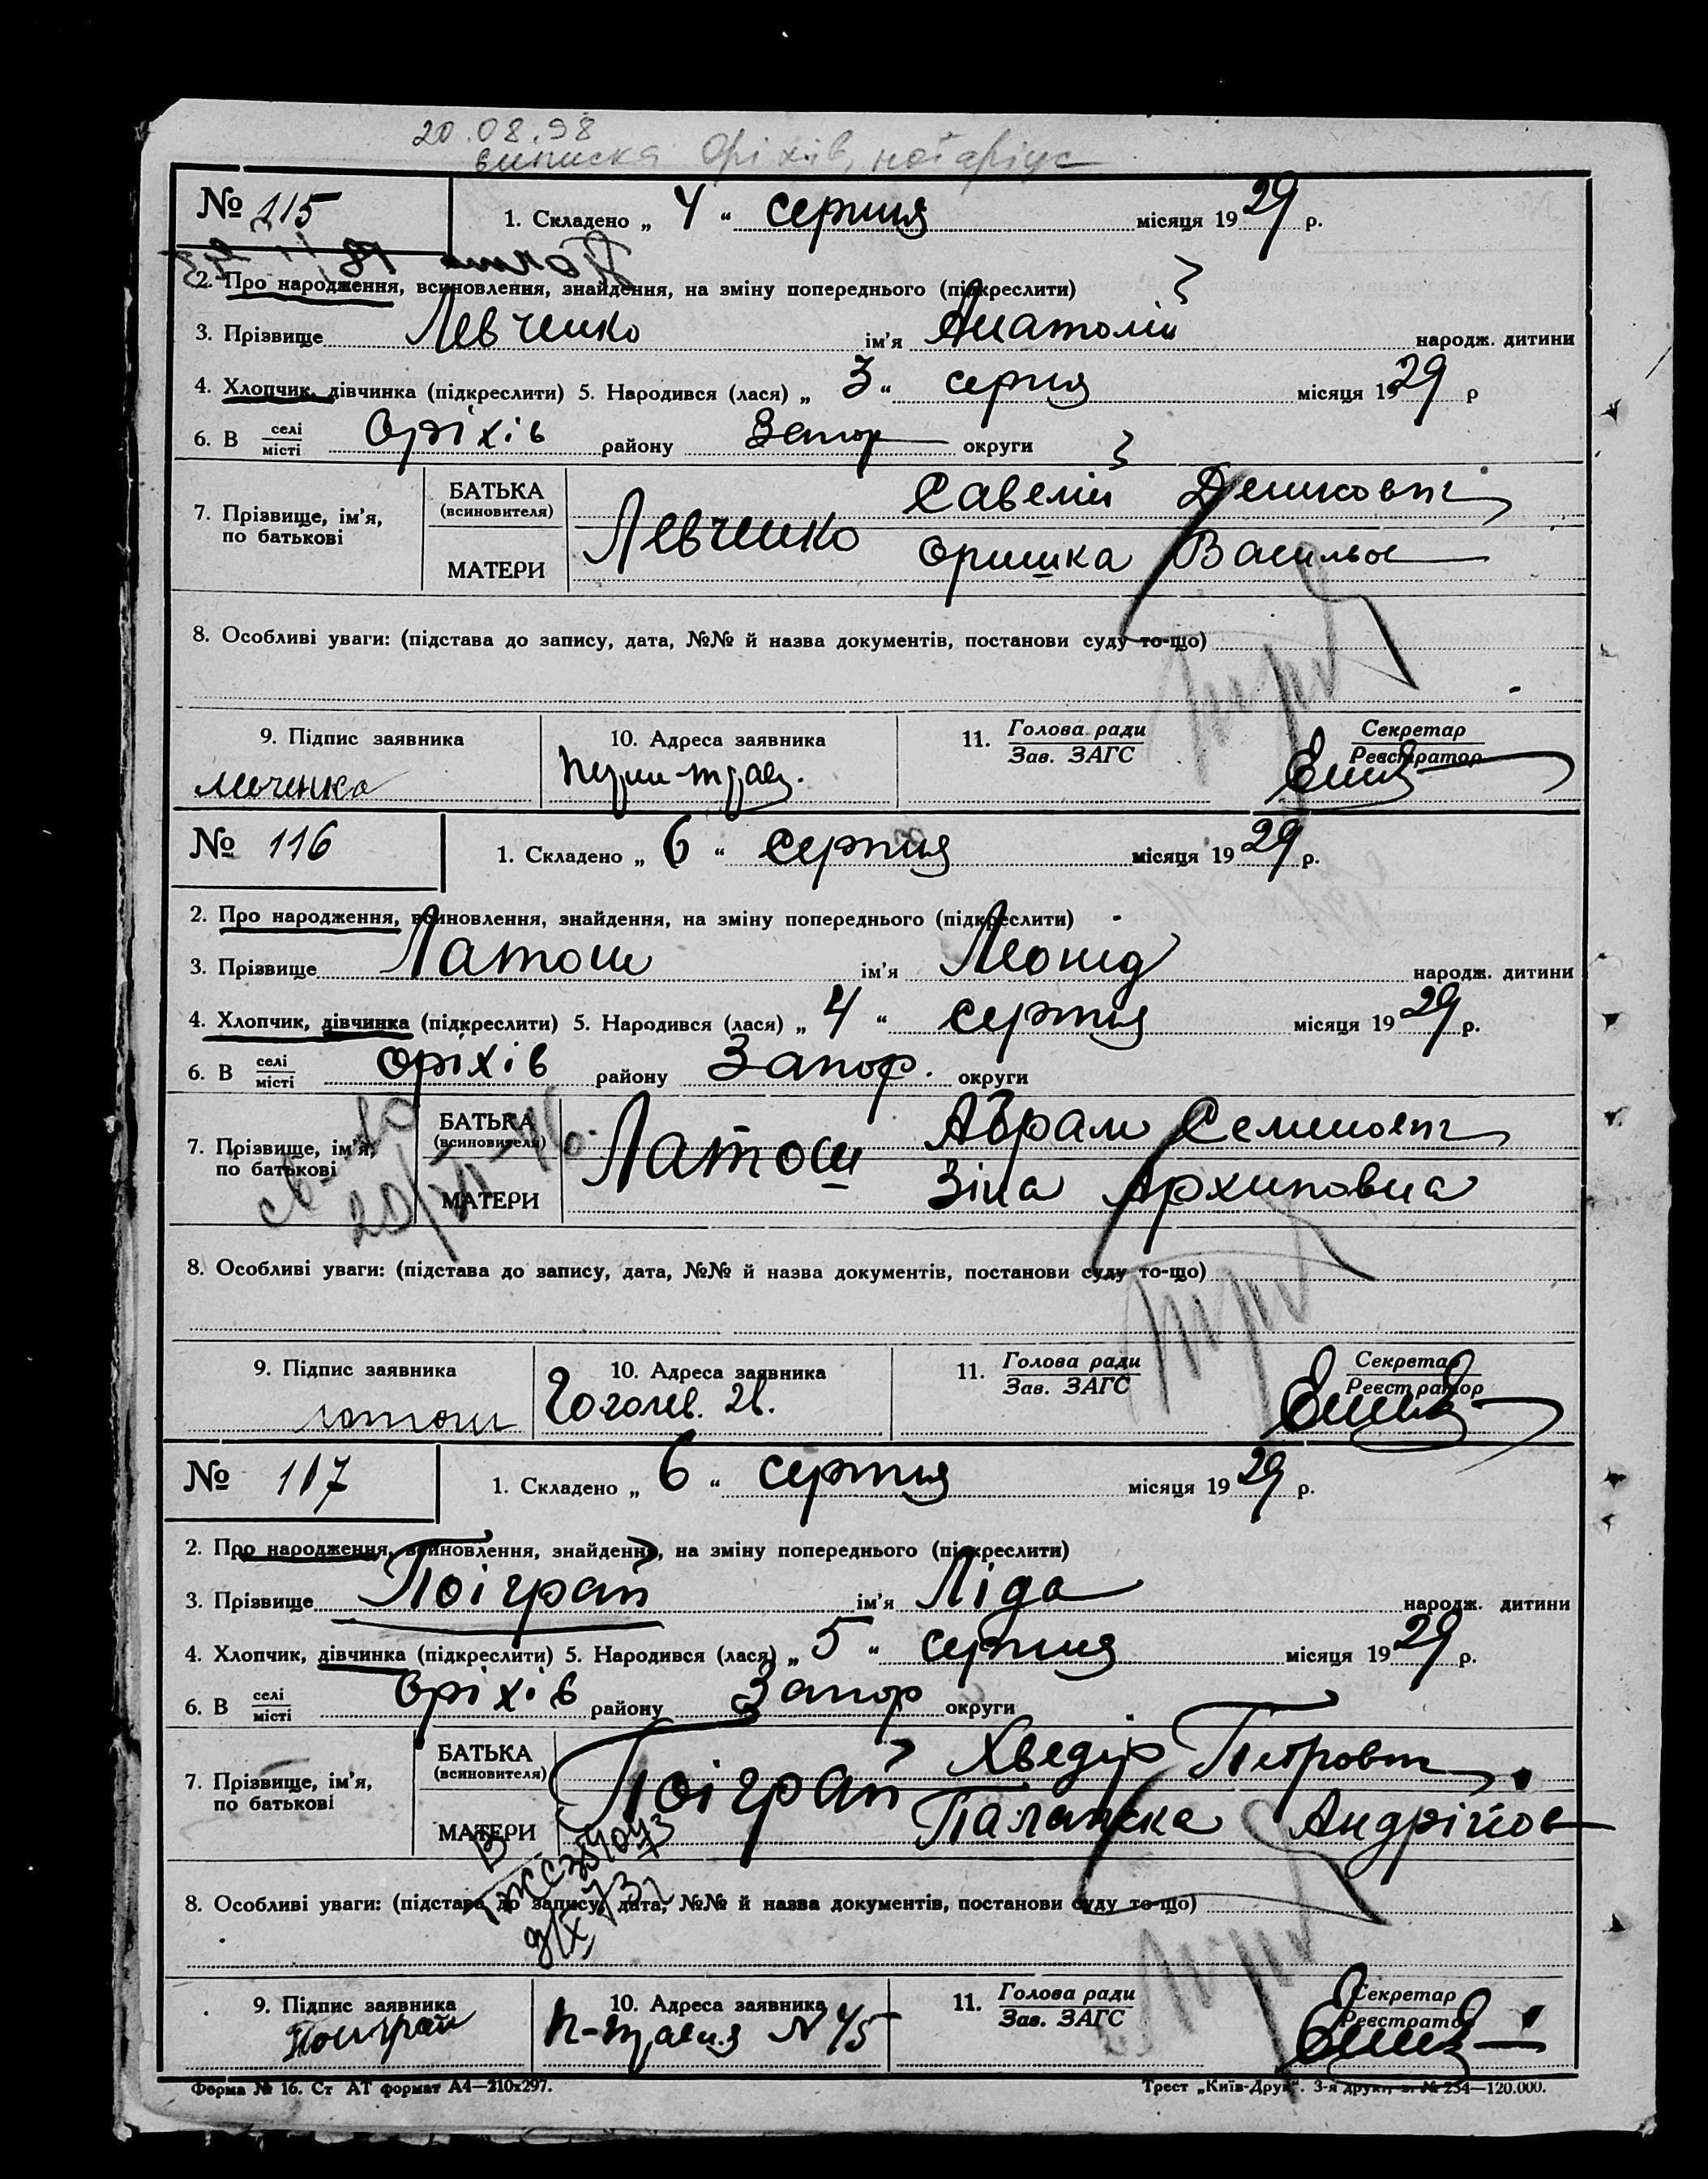 20.08.98
виписка Оріхів, нотаріус
№ 115
1. Складено „ 4 “ серпня місяця 1929 р.
2. Про народження, всиновлення, знайдення, на зміну попереднього (підкреслити)
3. Прізвище Левченко ім'я Анатолій народж. дитини
4. Хлопчик, дівчинка (підкреслити) 5. Народився (лася) „ 3 “ серпня місяця 1929 р
6. В селі місті Оріхів району Запор округи
7. Прізвище, ім'я, по батькові
БАТЬКА (всиновителя) Левченко Савелій
МАТЕРИ Оришка Васильов
8. Особливі уваги: (підстава до запису, дата, №№ й назва документів, постанови суду то-що)
9. Підпис заявника
10. Адреса заявника
11. Голова ради Зав. ЗАГС
Секретар Реєстратор
№ 116
1. Складено „ 6 “ серпня місяця 1929 р.
2. Про народження, всиновлення, знайдення, на зміну попереднього (підкреслити)
3. Прізвище Латош ім'я Леонід народж. дитини
4. Хлопчик, дівчинка (підкреслити) 5. Народився (лася) „ 4 “ серпня місяця 1929 р.
6. В селі місті Оріхів району Запор. округи
7. Прізвище, ім'я, по батькові
БАТЬКА (всиновителя) Латош Абрам Семенович
МАТЕРИ Зіна Архиповна
8. Особливі уваги: (підстава до запису, дата, №№ й назва документів, постанови суду то-що)
9. Підпис заявника
латош
10. Адреса заявника
Гоголев.
11. Голова ради Зав. ЗАГС
Секретар Реєстратор
№ 117
1. Складено „ 6 “ серпня місяця 1929 р.
2. Про народження, всиновлення, знайдення, на зміну попереднього (підкреслити)
3. Прізвище Поіграй ім'я Ліда народж. дитини
4. Хлопчик, дівчинка (підкреслити) 5. Народився (лася) „ 5 “ серпня місяця 1929 р.
6. В селі місті Оріхів району Запор округи
7. Прізвище, ім'я, по батькові
БАТЬКА (всиновителя) Поіграй Хведір Петрович
МАТЕРИ Палажка Андрійов
8. Особливі уваги: (підстава до запису, дата, №№ й назва документів, постанови суду то-що)
9. Підпис заявника
Поиграй
10. Адреса заявника
П-травня N 45
11. Голова ради Зав. ЗАГС
Секретар Реєстратор
Форма № 16. Ст АТ формат А4—210х297.
Трест „Київ-Друк“. 3-я друк., з. № 254—120.000.